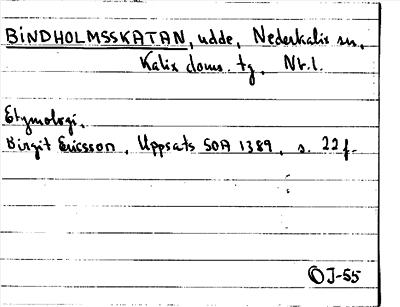 BINDHOLMSSKATAN, udde, Nederkalix sn,
Kalix doms. tg, Nr. l.
Etymologi.
Birgit Ericsson, Uppsats SOA 1389, s. 22 f.
OJ-55